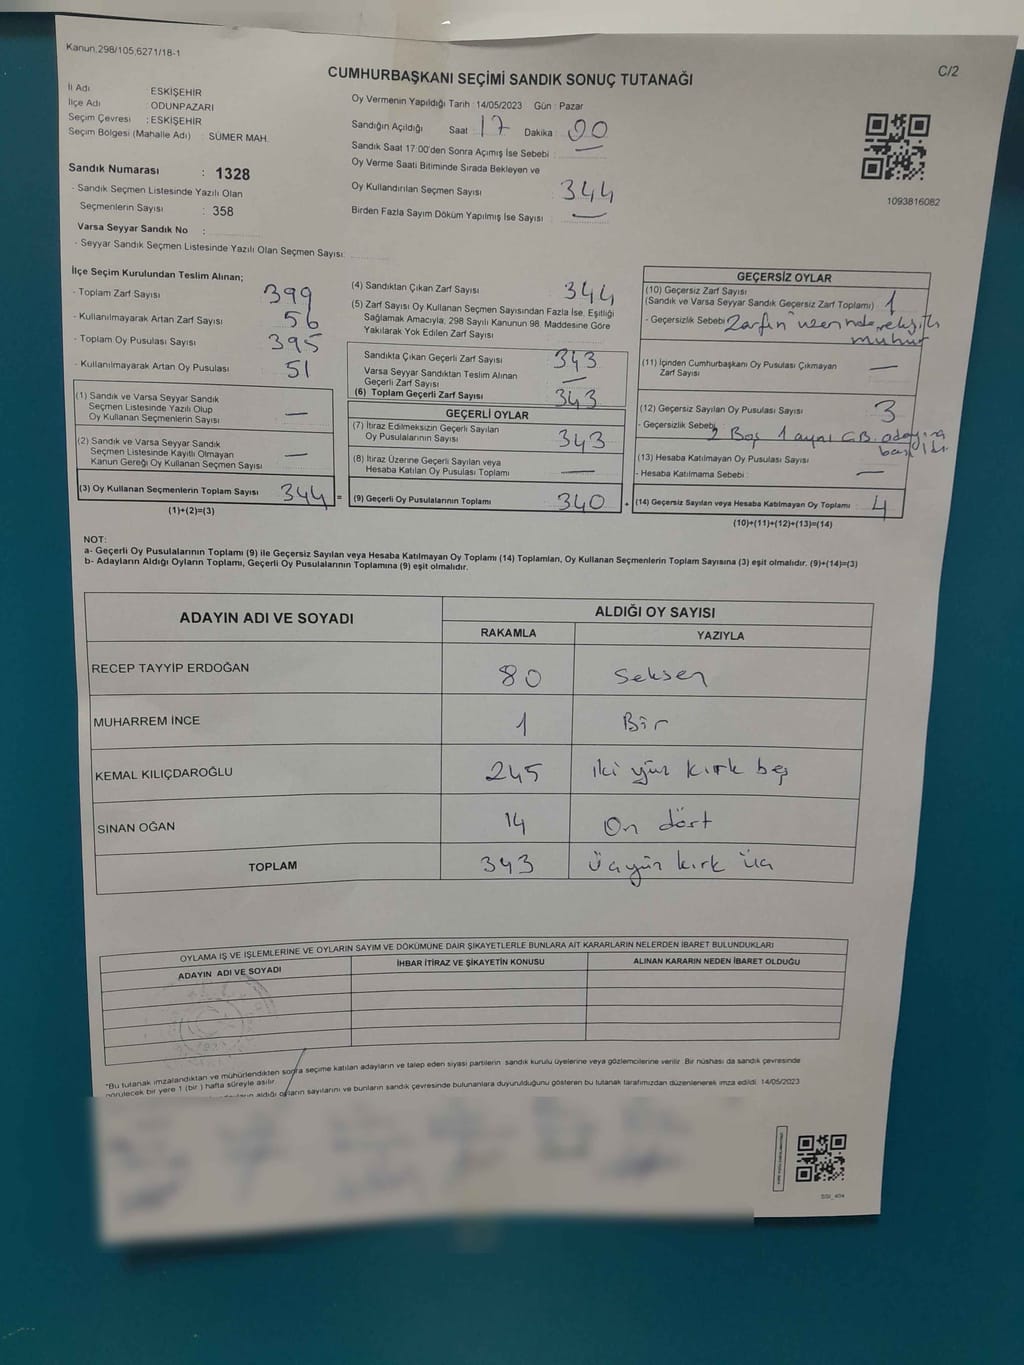 Kanun.298/105,6271/18-1
C/2
CUMHURBAŞKANI SEÇİMİ SANDIK SONUÇ TUTANAĞI
İl Adı ESKİŞEHİR
İlçe Adı ODUNPAZARI
Seçim Çevresi : ESKİŞEHİR
Seçim Bölgesi (Mahalle Adı) : SÜMER MAH.
Sandık Numarası : 1328
- Sandık Seçmen Listesinde Yazılı Olan
Seçmenlerin Sayısı : 358
Varsa Seyyar Sandık No :
- Seyyar Sandık Seçmen Listesinde Yazılı Olan Seçmen Sayısı:
Oy Vermenin Yapıldığı Tarih : 14/05/2023 Gün : Pazar
Sandığın Açıldığı Saat : 17 Dakika : 00
Sandık Saat 17:00'den Sonra Açımış İse Sebebi : —
Oy Verme Saati Bitiminde Sırada Bekleyen ve
Oy Kullandırılan Seçmen Sayısı : 344
Birden Fazla Sayım Döküm Yapılmış İse Sayısı : —
1093816082
İlçe Seçim Kurulundan Teslim Alınan;
- Toplam Zarf Sayısı 399
- Kullanılmayarak Artan Zarf Sayısı : 56
- Toplam Oy Pusulası Sayısı : 395
- Kullanılmayarak Artan Oy Pusulası : 51
(1) Sandık ve Varsa Seyyar Sandık
Seçmen Listesinde Yazılı Olup
Oy Kullanan Seçmenlerin Sayısı : —
(2) Sandık ve Varsa Seyyar Sandık
Seçmen Listesinde Kayıtlı Olmayan
Kanun Gereği Oy Kullanan Seçmen Sayısı : —
(3) Oy Kullanan Seçmenlerin Toplam Sayısı : 344 =
(1)+(2)=(3)
(4) Sandıktan Çıkan Zarf Sayısı : 344
(5) Zarf Sayısı Oy Kullanan Seçmen Sayısından Fazla İse, Eşitliği
Sağlamak Amacıyla, 298 Sayılı Kanunun 98. Maddesine Göre
Yakılarak Yok Edilen Zarf Sayısı :
Sandıkta Çıkan Geçerli Zarf Sayısı : 343
Varsa Seyyar Sandıktan Teslim Alınan
Geçerli Zarf Sayısı : —
(6) Toplam Geçerli Zarf Sayısı : 343
GEÇERLİ OYLAR
(7) İtiraz Edilmeksizin Geçerli Sayılan
Oy Pusulalarının Sayısı : 343
(8) İtiraz Üzerine Geçerli Sayılan veya
Hesaba Katılan Oy Pusulası Toplamı : —
(9) Geçerli Oy Pusulalarının Toplamı : 340 +
GEÇERSİZ OYLAR
(10) Geçersiz Zarf Sayısı
(Sandık ve Varsa Seyyar Sandık Geçersiz Zarf Toplamı) : 1
- Geçersizlik Sebebi : Zarfın üzerinde
mühür
(11) İçinden Cumhurbaşkanı Oy Pusulası Çıkmayan
Zarf Sayısı : —
(12) Geçersiz Sayılan Oy Pusulası Sayısı : 3
- Geçersizlik Sebebi : 2 Boş 1 aynı C.B. adayına
(13) Hesaba Katılmayan Oy Pusulası Sayısı :
- Hesaba Katılmama Sebebi : —
(14) Geçersiz Sayılan veya Hesaba Katılmayan Oy Toplamı : 4
(10)+(11)+(12)+(13)=(14)
NOT:
a- Geçerli Oy Pusulalarının Toplamı (9) ile Geçersiz Sayılan veya Hesaba Katılmayan Oy Toplamı (14) Toplamları, Oy Kullanan Seçmenlerin Toplam Sayısına (3) eşit olmalıdır. (9)+(14)=(3)
b- Adayların Aldığı Oyların Toplamı, Geçerli Oy Pusulalarının Toplamına (9) eşit olmalıdır.
ADAYIN ADI VE SOYADI ALDIĞI OY SAYISI
RAKAMLA YAZIYLA
RECEP TAYYİP ERDOĞAN 80 Seksen
MUHARREM İNCE 1 Bir
KEMAL KILIÇDAROĞLU 245 iki yüz kırk beş
SİNAN OĞAN 14 On dört
TOPLAM 343 Üçyüz kırk üç
OYLAMA İŞ VE İŞLEMLERİNE VE OYLARIN SAYIM VE DÖKÜMÜNE DAİR ŞİKAYETLERLE BUNLARA AİT KARARLARIN NELERDEN İBARET BULUNDUKLARI
ADAYIN ADI VE SOYADI İHBAR İTİRAZ VE ŞİKAYETİN KONUSU ALINAN KARARIN NEDEN İBARET OLDUĞU
"Bu tutanak imzalandıktan ve mühürlendikten sonra seçime katılan adayların ve talep eden siyasi partilerin sandık kurulu üyelerine veya gözlemcilerine verilir. Bir nüshası da sandık çevresinde
görülecek bir yere 1 (bir ) hafta süreyle asılır.
aldığı oyların sayılarını ve bunların sandık çevresinde bulunanlara duyurulduğunu gösteren bu tutanak tarafımızdan düzenlenerek imza edildi. 14/05/2023
SSI_404